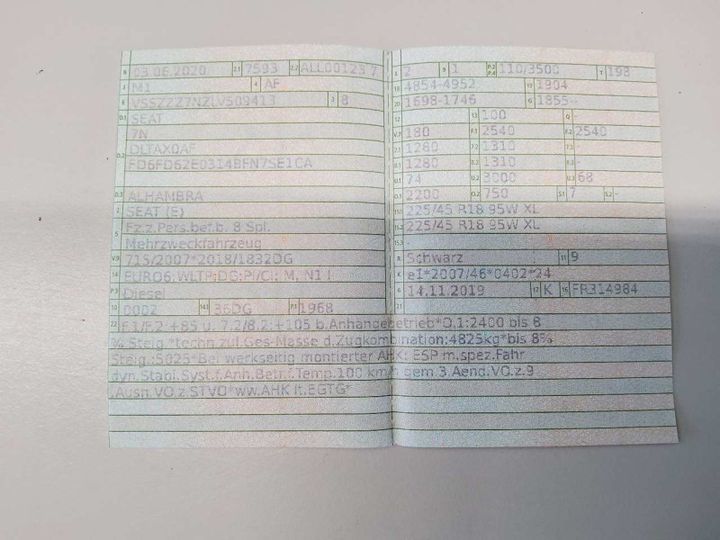 B 03.06.2020 2.1 7593 2.2 ALL00123 7
J M1 4 AF
E VSSZZZ7NZLV509413 3 8
D.1 SEAT
7N
D.2 DLTAX0AF
FD6FD62E0314BFN7SE1CA
D.3 ALHAMBRA
2 SEAT (E)
5 Fz.z.Pers.bef.b. 8 Spl.
Mehrzweckfahrzeug
V.9 715/2007*2018/1832DG
14 EURO6;WLTP;DG;PI/CI; M, N1 I
P.3 Diesel
10 0002 14.1 36DG P.1 1968
L 2 9 1 P.2 P.4 110/3500 T 198
18 4854-4952 19 1904
20 1698-1746 G 1855--
12 - 13 100 Q -
V.7 180 F.1 2540 F.2 2540
7.1 1280 7.2 1310 7.3 -
8.1 1280 8.2 1310 8.3 -
U.1 74 U.2 3000 U.3 68
O.1 2200 O.2 750 S.1 7 S.2 -
15.1 225/45 R18 95W XL
15.2 225/45 R18 95W XL
15.3 -
R Schwarz 11 9
K e1*2007/46*0402*24
6 14.11.2019 17 K 16 FR314984
21
22 F.1/F.2 +85 u. 7.2/8.2:+105 b.Anhängebetrieb*O.1:2400 bis 8
% Steig.*techn.zul.Ges-Masse d.Zugkombination:4825kg*bis 8%
Steig.:5025*Bei werkseitig montierter AHK: ESP m.spez.Fahr
dyn.Stabi.Syst.f.Anh.Betr.f.Temp.100 km/h gem.3.Aend.VO.z.9
.Ausn.VO.z.STVO*ww.AHK lt.EGTG*